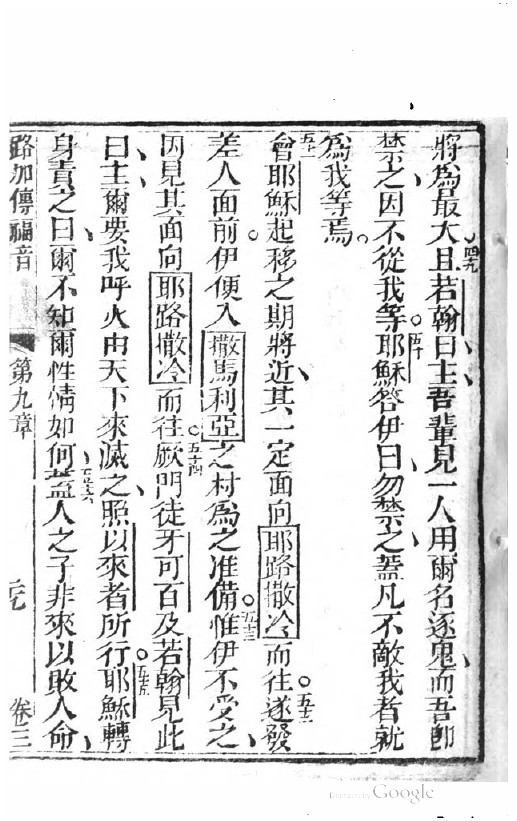 將為最大四九且若翰曰主吾輩見一人用爾名逐鬼而吾即
禁之因不從我等五十耶穌答伊曰勿禁之蓋凡不敵我者就
為我等焉
五一會耶穌起移之期將近其一定面向耶路撒冷而往五二遂發
差人面前伊便入撒馬利亞之村為之准備五三惟伊不受之
因見其面向耶路撒冷而往五四厥門徒牙可百及若翰見此
曰主爾要我呼火由天下來滅之照以來者所行五五耶穌轉
身責之曰爾不知爾性情如何五六蓋人之子非來以敗人命
路加傳福音 第九章 卷三
Google